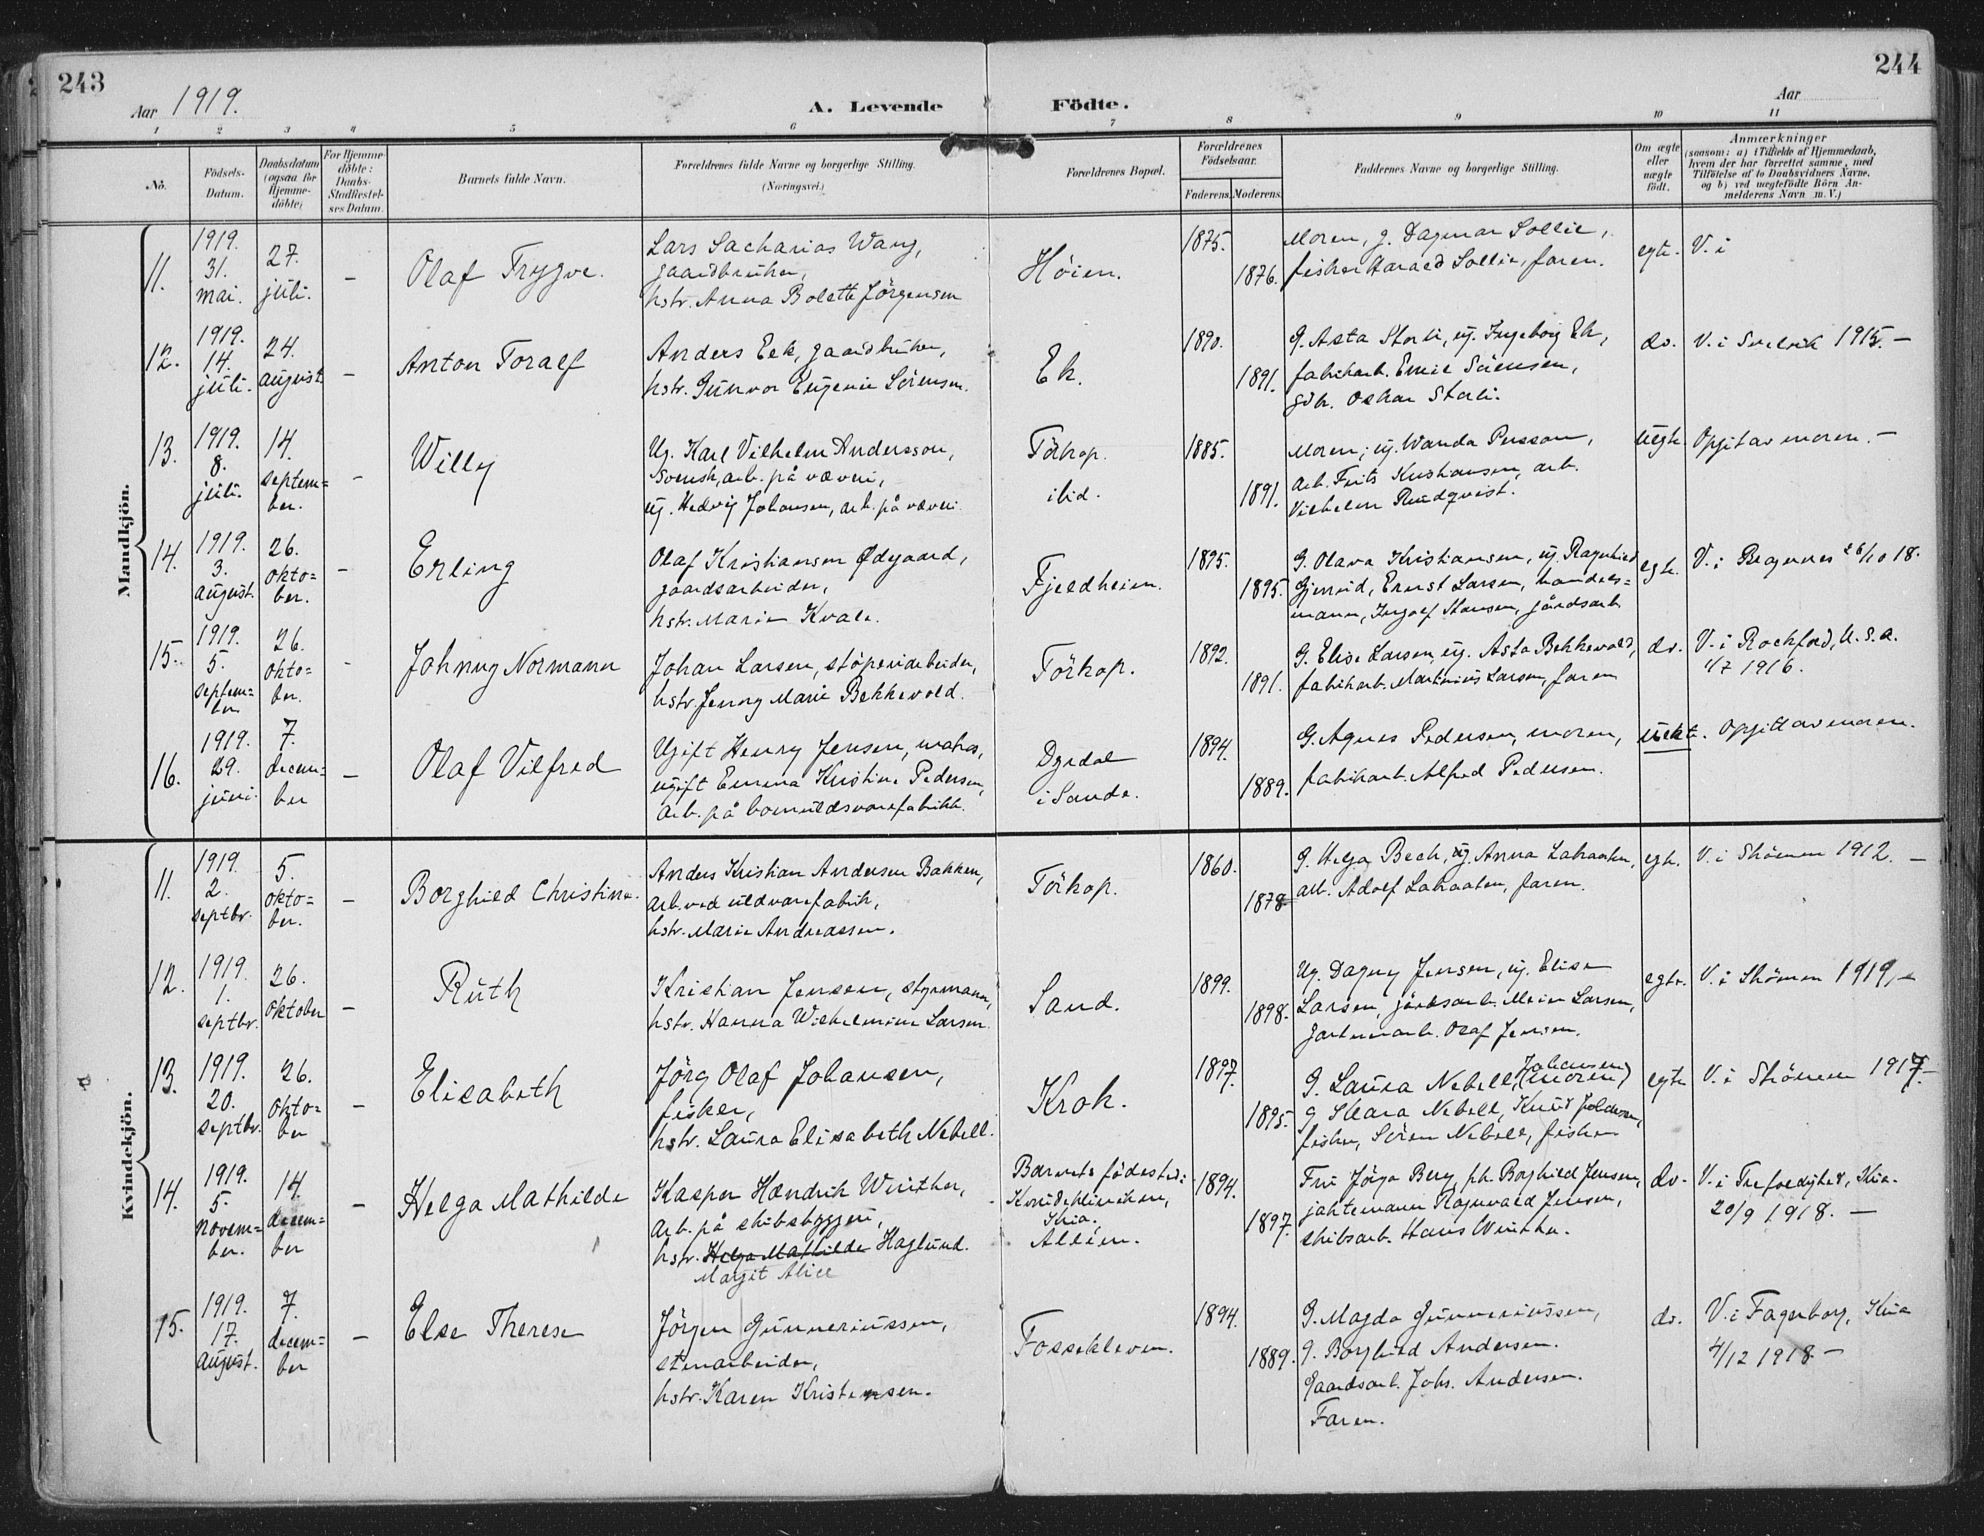 243
244
Aar 1919.
A. Levende Födte.
Aar
1 2 3 4 5 6 7 8 9 10 11
No.
Födsels-Datum.
Daabsdatum (ogsaa for Hjemme-döbte)
For Hjemme-döbte: Daabs-Stadfæstel-ses Datum.
Barnets fulde Navn.
Forældrenes fulde Navne og borgerlige Stilling.
(Næringsvei.)
Forældrenes Bopæl.
Forældrenes Födselsaar.
Faderens. Moderens.
Faddernes Navne og borgerlige Stilling.
Om ægte eller uægte födt.
Anmærkninger
(saasom: a) i Tilfælde af Hjemmedaab, hvem der har forrettet samme, med Tilföielse af to Daabsvidners Navne, og b) ved uægtefödte Börn Anmelderens Navn m. V.)
Mandkjön.
11.
1919. 31. mai.
27. juli.
–
Olaf Trygve.
Lars Sacharias Wang,
gaardbruker,
hstr. Anna Bolette Jörgensen
Höien.
1875.
1876.
Moren, g. Dagmar Sollie,
fisker Harald Sollie, faren.
egte.
V. i
12.
1919. 14. juli.
24. august
–
Anton Toralf
Anders Eek, gaardbruker,
hstr. Gunvor Eugenie Sörensen.
Ek.
1890.
1891.
G. Asta Storli, ug. Ingeborg Ek,
fabrikarb. Emil Sörensen,
gdb. Oskar Storli.
do.
V. i Svelvik 1915. –
13.
1919. 8. juli.
14. septem=
ber.
–
Willy
Ug. Karl Vilhelm Andersson,
svensk, arb. på væveri,
ug. Hedvig Johansen, arb. på væveri.
Törkop.
ibid.
1885.
1891.
Moren, ug. Wanda Persson,
arb. Frits Kristiansen, arb.
Vilhelm Rundqvist.
uegte.
Opgit av moren. –
14.
1919. 3. august.
26. okto=
ber.
–
Erling
Olaf Kristiansen Ödegaard,
gaardsarbeider,
hstr. Marie Kvale.
Fjeldheim.
1895.
1895.
G. Olava Kristiansen, ug. Ragnhild
Gjerud, Ernst Larsen, handels=
mann, Ingolf Hansen, jårdsarb.
egte.
V. i Bragernes 26/10 18.
15.
1919. 5. septem=
ber
26. okto=
ber.
-
Johnny Normann
Johan Larsen, stöperiarbeider,
hstr. Jenny Marie Bekkevold.
Törkop.
1892.
1891.
G. Elise Larsen, ug. Asta Bekkevold,
fabrikarb. Martinius Larsen, faren
do.
V. i Rockford, U.S.A.
1/7 1916.
16.
1919. 29. juni.
7. decem=
ber
–
Olaf Vilfred
Ugift Henry Jensen, matros,
ugift Emma Kristine Pedersen,
arb. på bomuldsvarefabrikk.
Dyrdal
i Sande.
1894.
1889.
G. Agnes Pedersen, moren,
fabrikarb. Alfred Pedersen.
uekte.
Opgitt av moren.
Kvindekjön.
11.
1919. 2. septbr.
5. okto=
ber.
–
Borghild Christine.
Anders Kristian Andersen Bakken,
arb. ved uldvarefabrik,
hstr. Marie Andreassen.
Törkop.
1860.
1878
G. Helga Bech, ug Anna Lahaaten,
arb. Adolf Lahaaten, faren.
egte.
V. i Skömen 1912. –
12.
1919. 1. septbr.
26. oktober
–
Ruth
Kristian Jensen, styrmann,
hstr. Hanna Wilhelmine Larsen.
Sand.
1899.
1898.
Ug. Dagny Jensen, ug. Elise
Larsen, jårdsarb. Meier Larsen,
gartnerarb. Olaf Jensen.
egte.
V. i Skömen 1919, –
13.
1919. 20. septbr.
26. okto=
ber
–
Elisabeth
Jörg Olaf Johansen,
fisker,
hstr. Laura Elisabeth Nebell.
Krok.
1897.
1895.
Johansen
G. Laura Nebell, (moren)
g. Klara Nebell, Knut
fisker, Sören Nebell, fisker
egte
V. i Skömen 1917. –
14.
1919. 5. novem=
ber.
14. decem=
ber
–
Helga Mathilde
Kasper Hendrik Winther,
arb. på skibsbyggeri,
hstr. Helga Mathilde Haglund.
Margit Alice
Barnets födested:
Kvindeklinikken,
Kria.
Alléen.
1894.
1897
Fru Jörga Berg, pk. Borghild Jensen,
jaktemann Ragnvald Jensen,
skibsarb. Hans Winther.
do.
V. i Trefoldighet, Kria.
20/9 1918. –
15.
1919. 17. august.
7. decem=
ber
–
Else Therese
Jörgen Gunneriussen,
stenarbeider,
hstr. Karen Kristensen.
Fossekleven.
1894.
1889.
G. Magda Gunneriussen,
g. Borghild Andersen.
Gaardsarb. Johs. Andersen.
Faren.
do.
V. i Fagerborg, Kria
4/12 1918. –